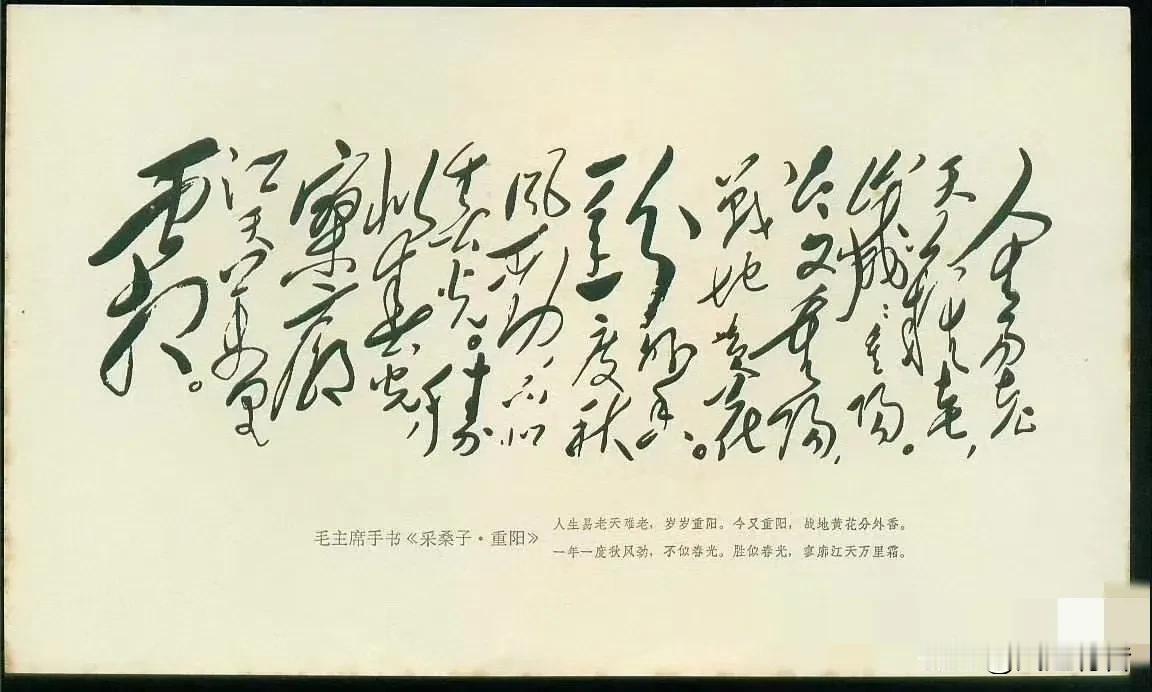 人生易老
天難老,
歲〻重陽。
今又重陽,
戰地黄花
分外香。
一年一度秋
風勁,不似
春光。勝
似春光,
寥廓
江天萬里
霜。
毛主席手书《采桑子·重阳》
人生易老天难老,岁岁重阳。今又重阳,战地黄花分外香。
一年一度秋风劲,不似春光。胜似春光,寥廓江天万里霜。